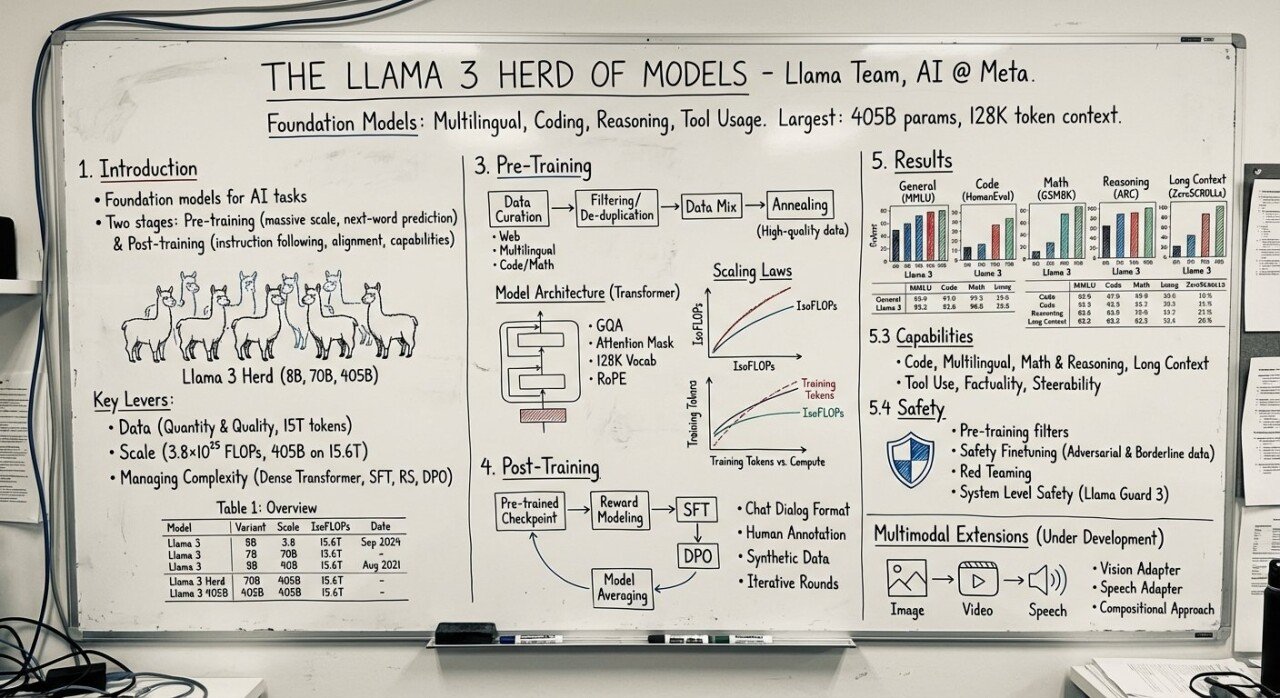 THE LLAMA 3 HERD OF MODELS - Llama Team, AI @ Meta.
Foundation Models: Multilingual, Coding, Reasoning, Tool Usage. Largest: 405B params, 128K token context.
1. Introduction
• Foundation models for AI tasks
• Two stages: Pre-training (massive scale, next-word prediction)
& Post-training (instruction following, alignment, capabilities)
Llama 3 Herd (8B, 70B, 405B)
Key Levers:
• Data (Quantity & Quality, 15T tokens)
• Scale (3.8×10²⁵ FLOPs, 405B on 15.6T)
• Managing Complexity (Dense Transformer, SFT, RS, DPO)
Table 1: Overview
Model Variant Scale IseFLOPs Date
Llama 3 3.8 15.6T Sep 2024
Llama 3 70B -
Llama 3 15.6T Aug 2021
Llama 3 Herd 70B 405B 15.6T -
Llama 3 405B 405B 15.6T -
3. Pre-Training
Data Curation
Filtering/
De-duplication
Data Mix
Annealing
(High-quality data)
• Web
• Multilingual
• Code/Math
Model Architecture (Transformer)
• GQA
• Attention Mask
• 128K Vocab
• RoPE
Scaling Laws
IsoFLOPs
IsoFLOPs
IsoFLOPs
Training Tokens
Training
Tokens
IsoFLOPs
Training Tokens vs. Compute
4. Post-Training
Pre-trained
Checkpoint
Reward
Modeling
SFT
DPO
Model
Averaging
• Chat Dialog Format
• Human Annotation
• Synthetic Data
• Iterative Rounds
5. Results
General
(MMLU)
Code
(HumanEval)
Math
(GSM8K)
Reasoning
(ARC)
Long Context
(ZeroSCROLLs)
Llama 3
Llama 3
Llama 3
Llama 3
Llama 3
MMLU Code Math Long
General
Llama 3
MMLU Code Math Long ZeroSCROLLS
Code
Code
Reasoning
Long Context
5.3 Capabilities
• Code, Multilingual, Math & Reasoning, Long Context
• Tool Use, Factuality, Steerability
5.4 Safety
• Pre-training filters
• Safety Finetuning (Adversarial & Borderline data)
• Red Teaming
• System Level Safety (Llama Guard 3)
Multimodal Extensions (Under Development)
Image
Video
Speech
• Vision Adapter
• Speech Adapter
• Compositional Approach